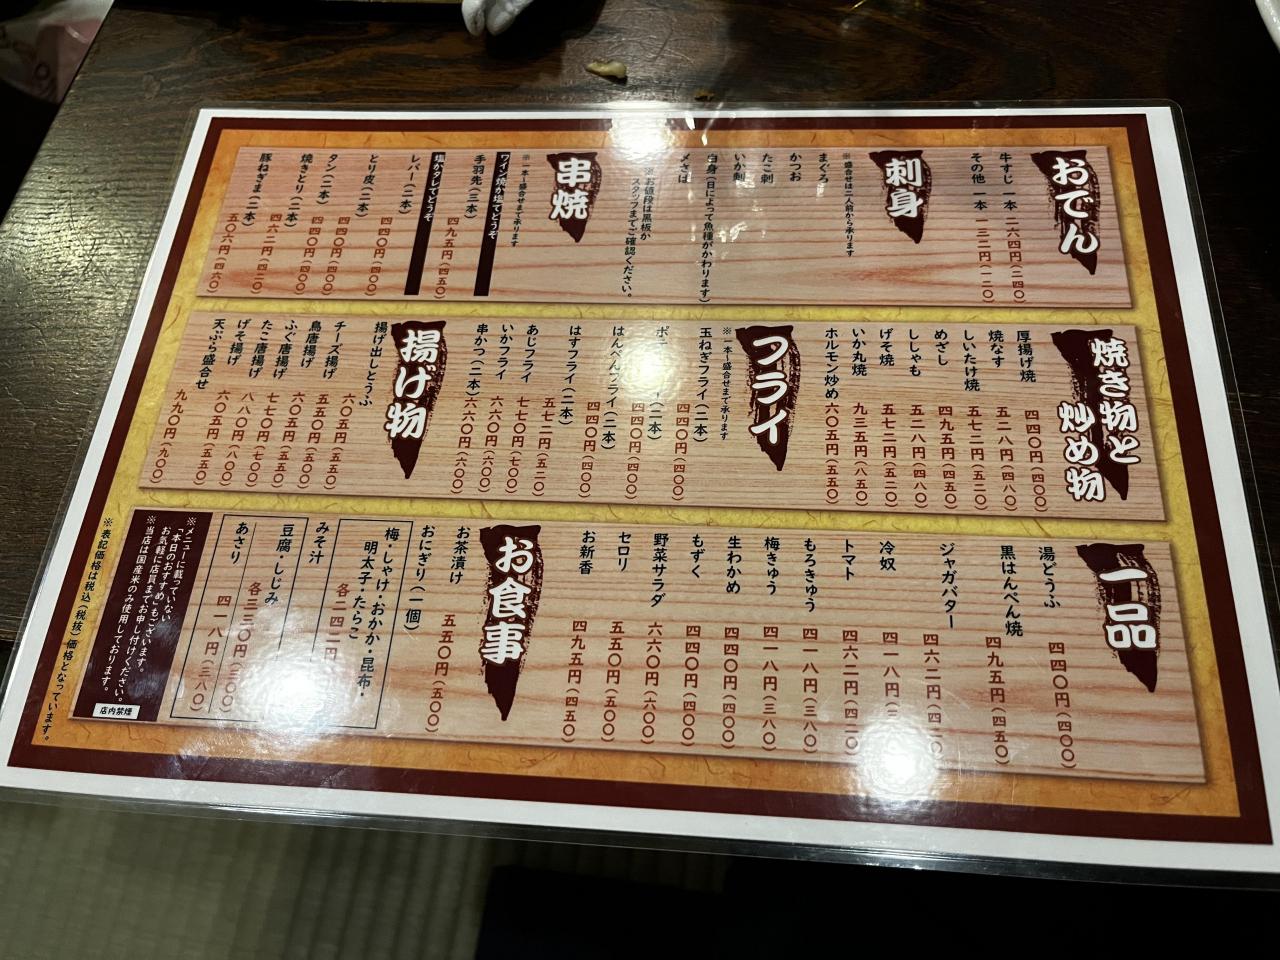 おでん
牛すじ 一本 二六四円(二四〇)
その他 一本 一三二円(一二〇)
刺身
※盛合せは二人前から承ります
まぐろ
かつお
たこ刺
いか刺
白身(日によって魚種がかわります)
〆さば
※お値段は黒板か
スタッフまでご確認ください。
串焼
※一本・盛合せまで承ります
ワイン焼か塩でどうぞ
手羽先(三本) 四九五円(四五〇)
塩かタレでどうぞ
レバー(二本) 四四〇円(四〇〇)
とり皮(二本) 四四〇円(四〇〇)
タン(二本) 四四〇円(四〇〇)
焼きとり(二本) 四六二円(四二〇)
豚ねぎま(二本) 五〇六円(四六〇)
焼き物と
炒め物
厚揚げ焼 四四〇円(四〇〇)
焼なす 五二八円(四八〇)
しいたけ焼 五七二円(五二〇)
めざし 四九五円(四五〇)
ししゃも 五二八円(四八〇)
げそ焼 五七二円(五二〇)
いか丸焼 九三五円(八五〇)
ホルモン炒め 六〇五円(五五〇)
フライ
※一本・盛合せまで承ります
玉ねぎフライ(二本) 四四〇円(四〇〇)
(二本) 四四〇円(四〇〇)
はんぺんフライ(二本) 四四〇円(四〇〇)
はすフライ(二本) 四四〇円(四〇〇)
あじフライ 五七二円(五二〇)
いかフライ 七七〇円(七〇〇)
串かつ(二本) 六六〇円(六〇〇)
揚げ物
揚げ出しとうふ
チーズ揚げ 六〇五円(五五〇)
鳥唐揚げ 五五〇円(五〇〇)
ふぐ唐揚げ 六〇五円(五五〇)
たこ唐揚げ 七七〇円(七〇〇)
げそ揚げ 八八〇円(八〇〇)
天ぷら盛合せ 九九〇円(九〇〇)
一品
湯どうふ 四四〇円(四〇〇)
黒はんぺん焼 四九五円(四五〇)
ジャガバター 四六二円(四二〇)
冷奴 四一八円(三八〇)
トマト 四六二円(四二〇)
もろきゅう 四一八円(三八〇)
梅きゅう 四一八円(三八〇)
生わかめ 四四〇円(四〇〇)
もずく 四四〇円(四〇〇)
野菜サラダ 六六〇円(六〇〇)
セロリ 五五〇円(五〇〇)
お新香 四九五円(四五〇)
お食事
お茶漬け 五五〇円(五〇〇)
おにぎり(一個)
梅・しゃけ・おかか・昆布・
明太子・たらこ
みそ汁
豆腐・しじみ 各三三〇円(三〇〇)
あさり 四一八円(三八〇)
※メニューに載っていない
「本日のおすすめ」もございます。
お気軽に店員までお申し付けください。
※当店は国産米のみ使用しております。
店内禁煙
※表記価格は税込(税抜)価格となっています。